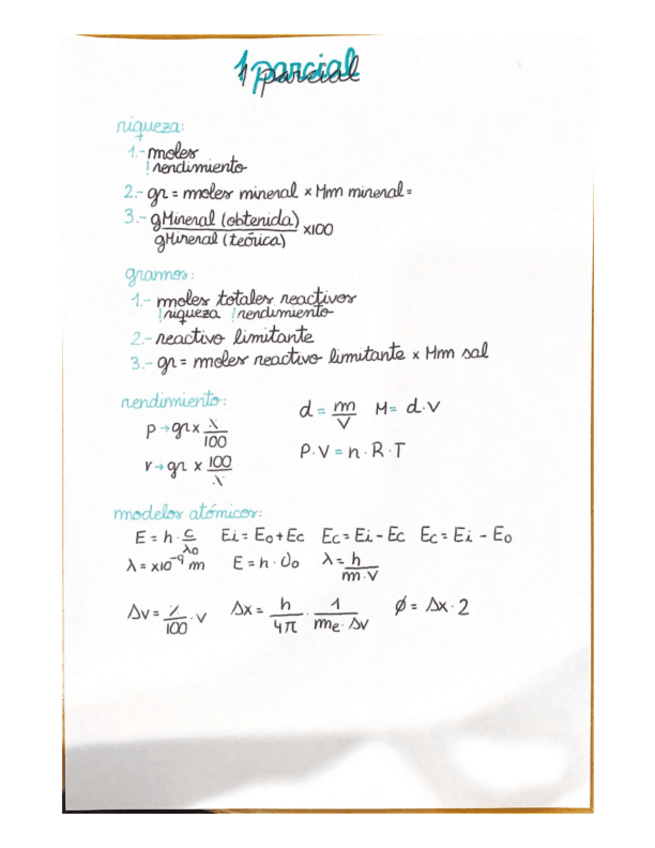 1 parcial
riqueza:
1.- moles
! rendimiento
2.- gr = moles mineral × Mm mineral =
3.- gMineral (obtenida) / gMineral (teórica) ×100
gramos:
1.- moles totales reactivos
! riqueza ! rendimiento
2.- reactivo limitante
3.- gr = moles reactivo limitante × Mm sal
rendimiento:
d = m/V M = d·V
p → gr × /100
r → gr × 100/
P·V = n·R·T
modelos atómicos:
E = h · c/λ0 Ei = E0 + Ec Ec = Ei - Ec Ec = Ei - E0
λ = ×10⁻⁹ m E = h · 0 λ = h/m·v
Δv = %/100 · v Δx = h/4π · 1/me·Δv Ø = Δx · 2